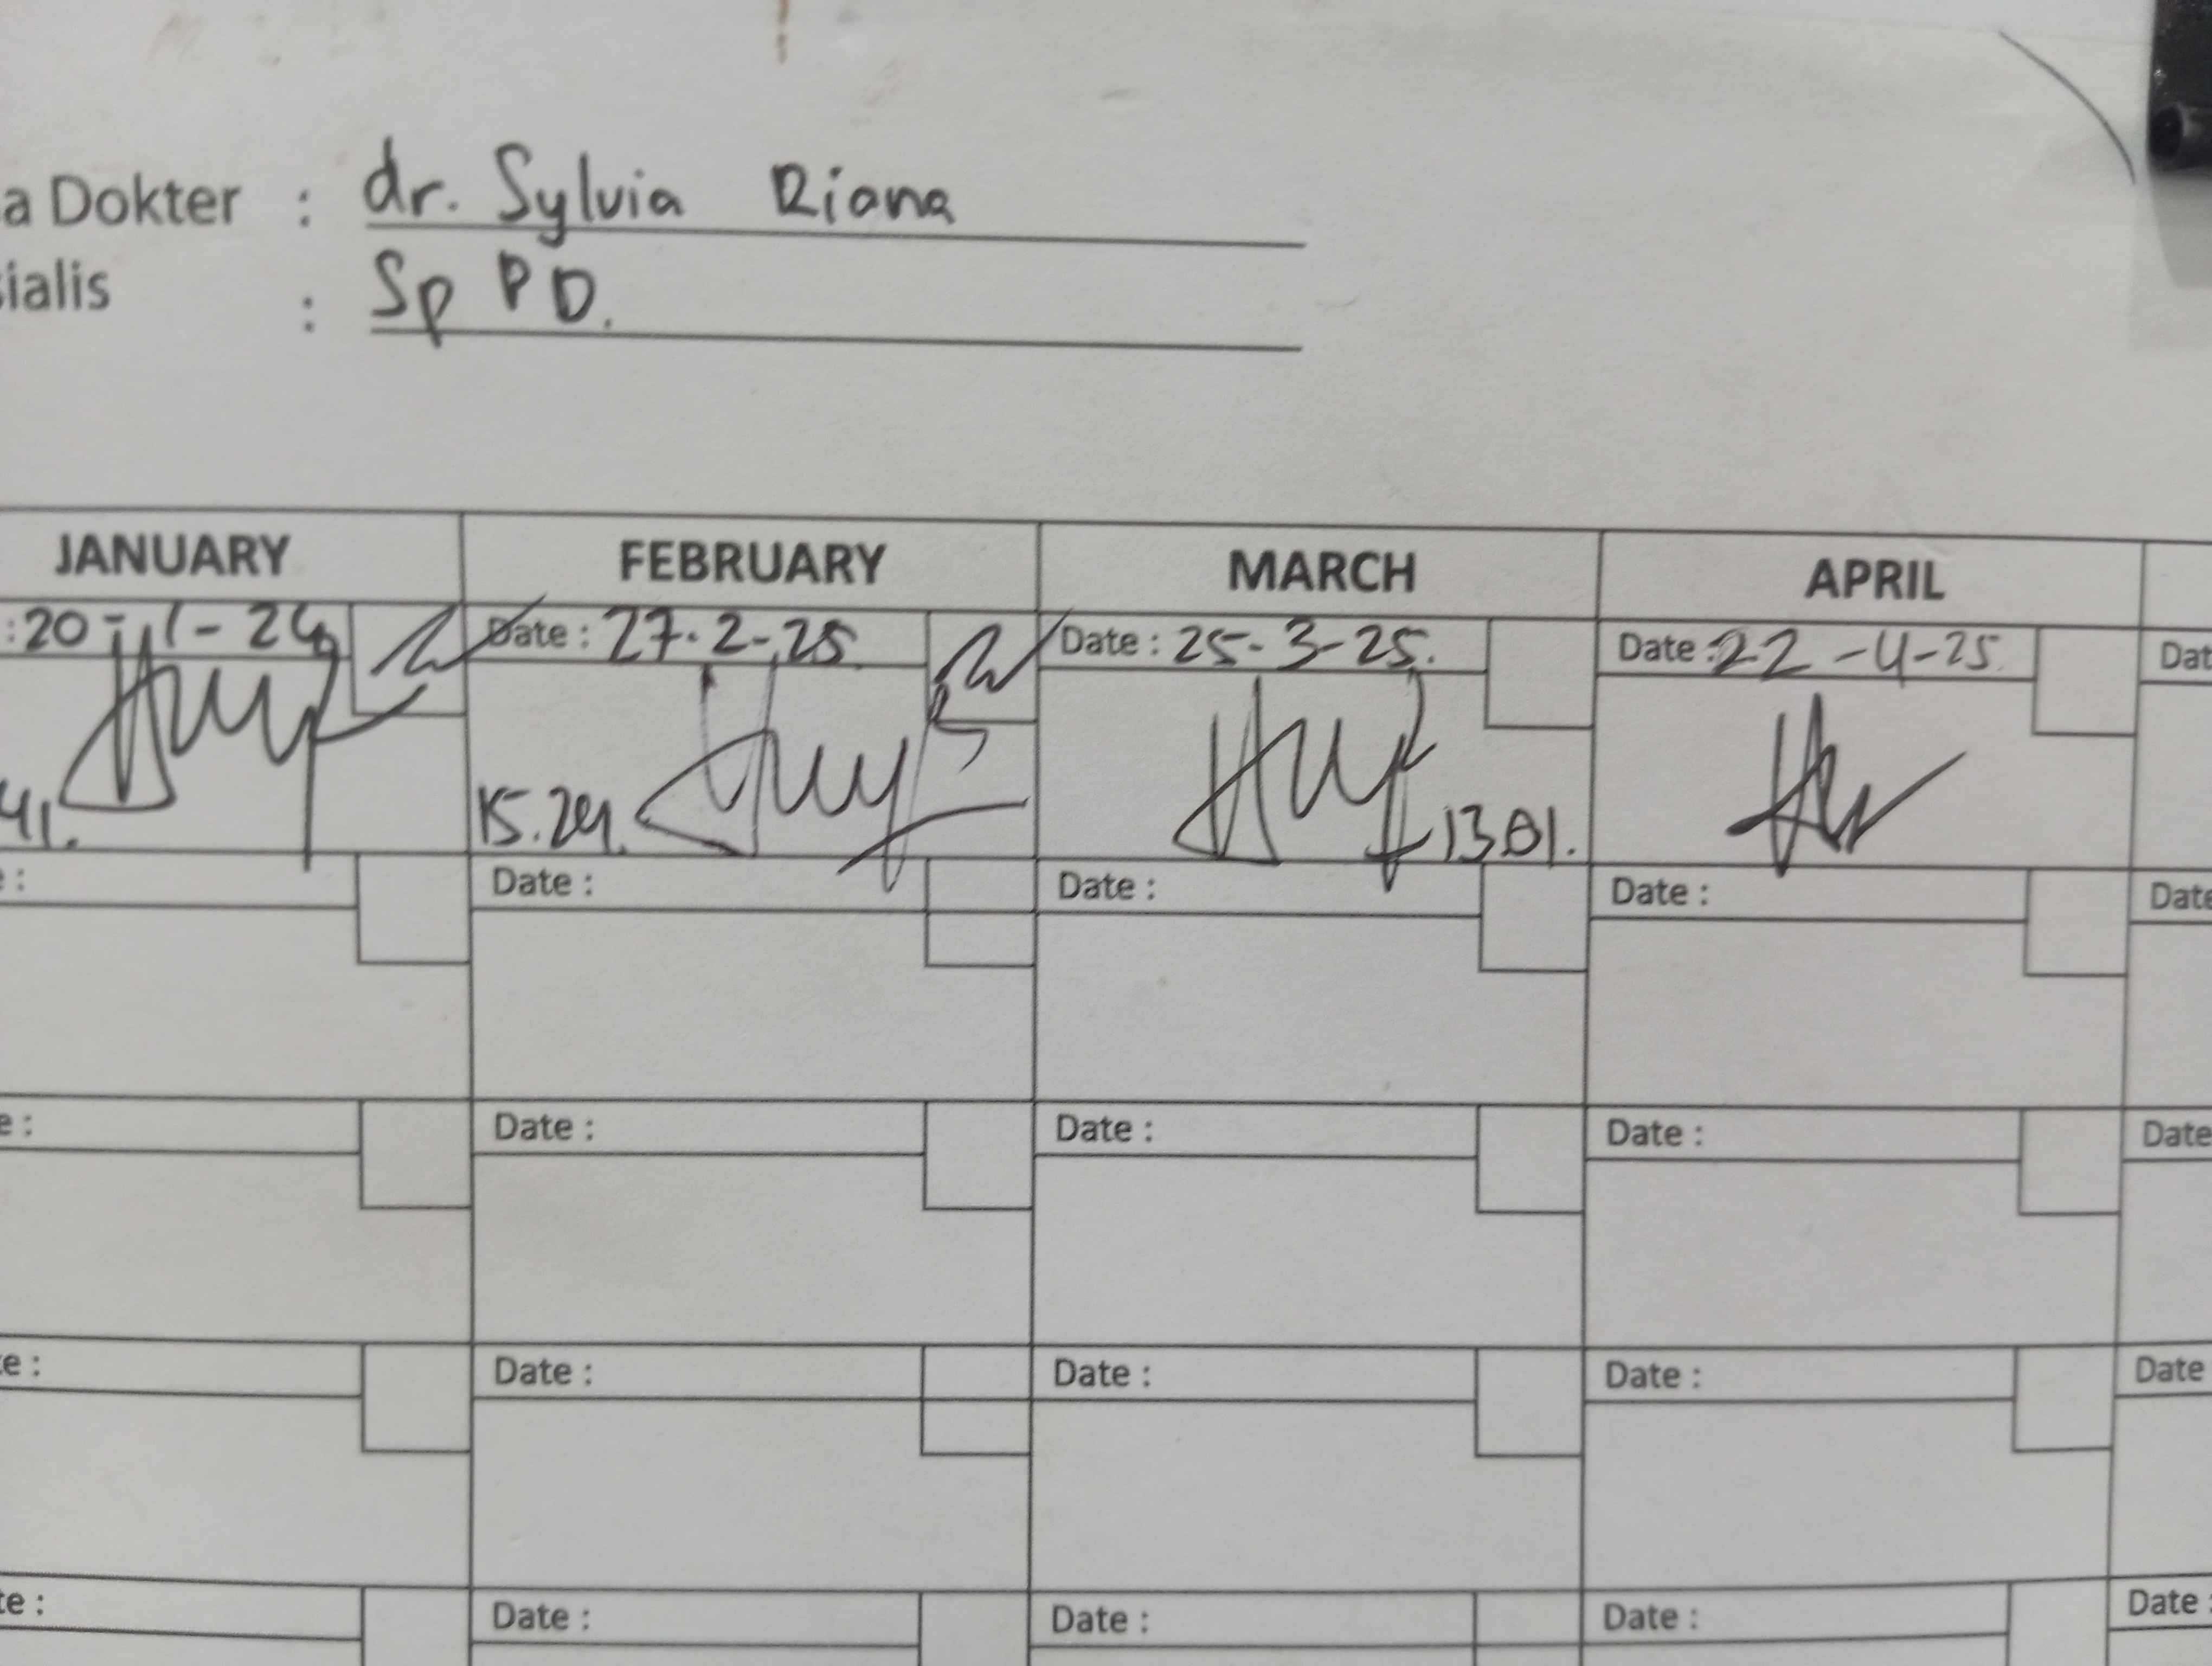 a Dokter : dr. Sylvia Riana
sialis : Sp PD.
JANUARY FEBRUARY MARCH APRIL
: 20-1-24 Date : 27-2-25 Date : 25-3-25. Date : 22-4-25. Dat
41. 15.24. 13.01.
e : Date : Date : Date : Date
e : Date : Date : Date : Date
te : Date : Date : Date : Date
te : Date : Date : Date : Date :